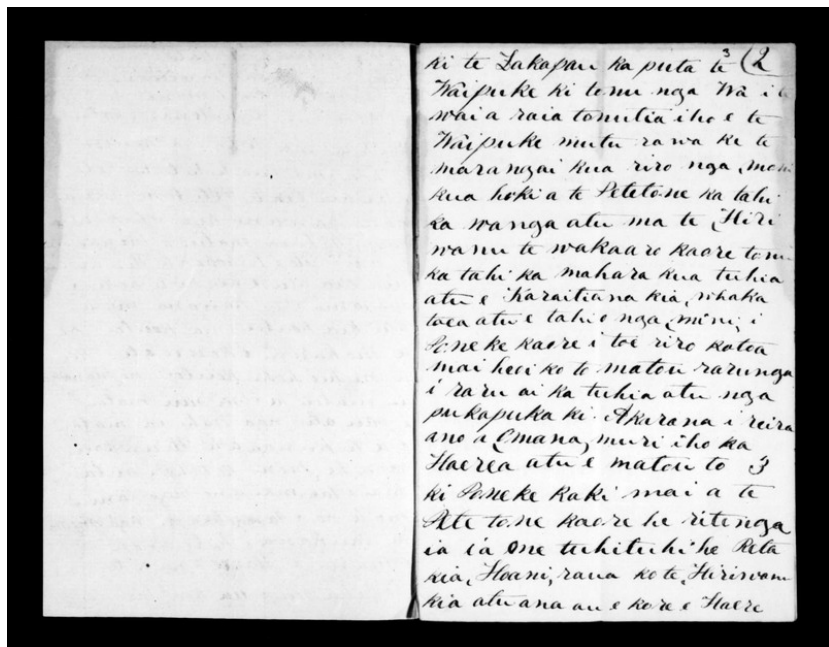 3 (2
ki te Takapau ka puta te
Waipuke ki tomu nga Wā i te
wai a raia tomitia iho e te
Waipuke mutu rawa ke te
marangai kua riro nga moni
kua hoki a te Petetone ka tahi
ka wanga atu ma te Hiri
wanu te wakaaro kaore tonu
ka tahi ka mahara kua tuhia
atu e Karaitiana kia whaka
toea atu e tahi o nga mini i
Poneke kaore i toe riro katoa
mai heoi ko to matou rarunga
i raru ai ka tuhia atu nga
pukapuka ki Akarana i reira
ano a Omana, muri iho ka
Haerea atu e matou to 3
ki Poneke kaki mai a te
Pete tone kaore he ritenga
ia ia one tuhituhi he Reta
kia Hoani, raua ko te Hiriwanu
kia atu ana au e kore e Haere